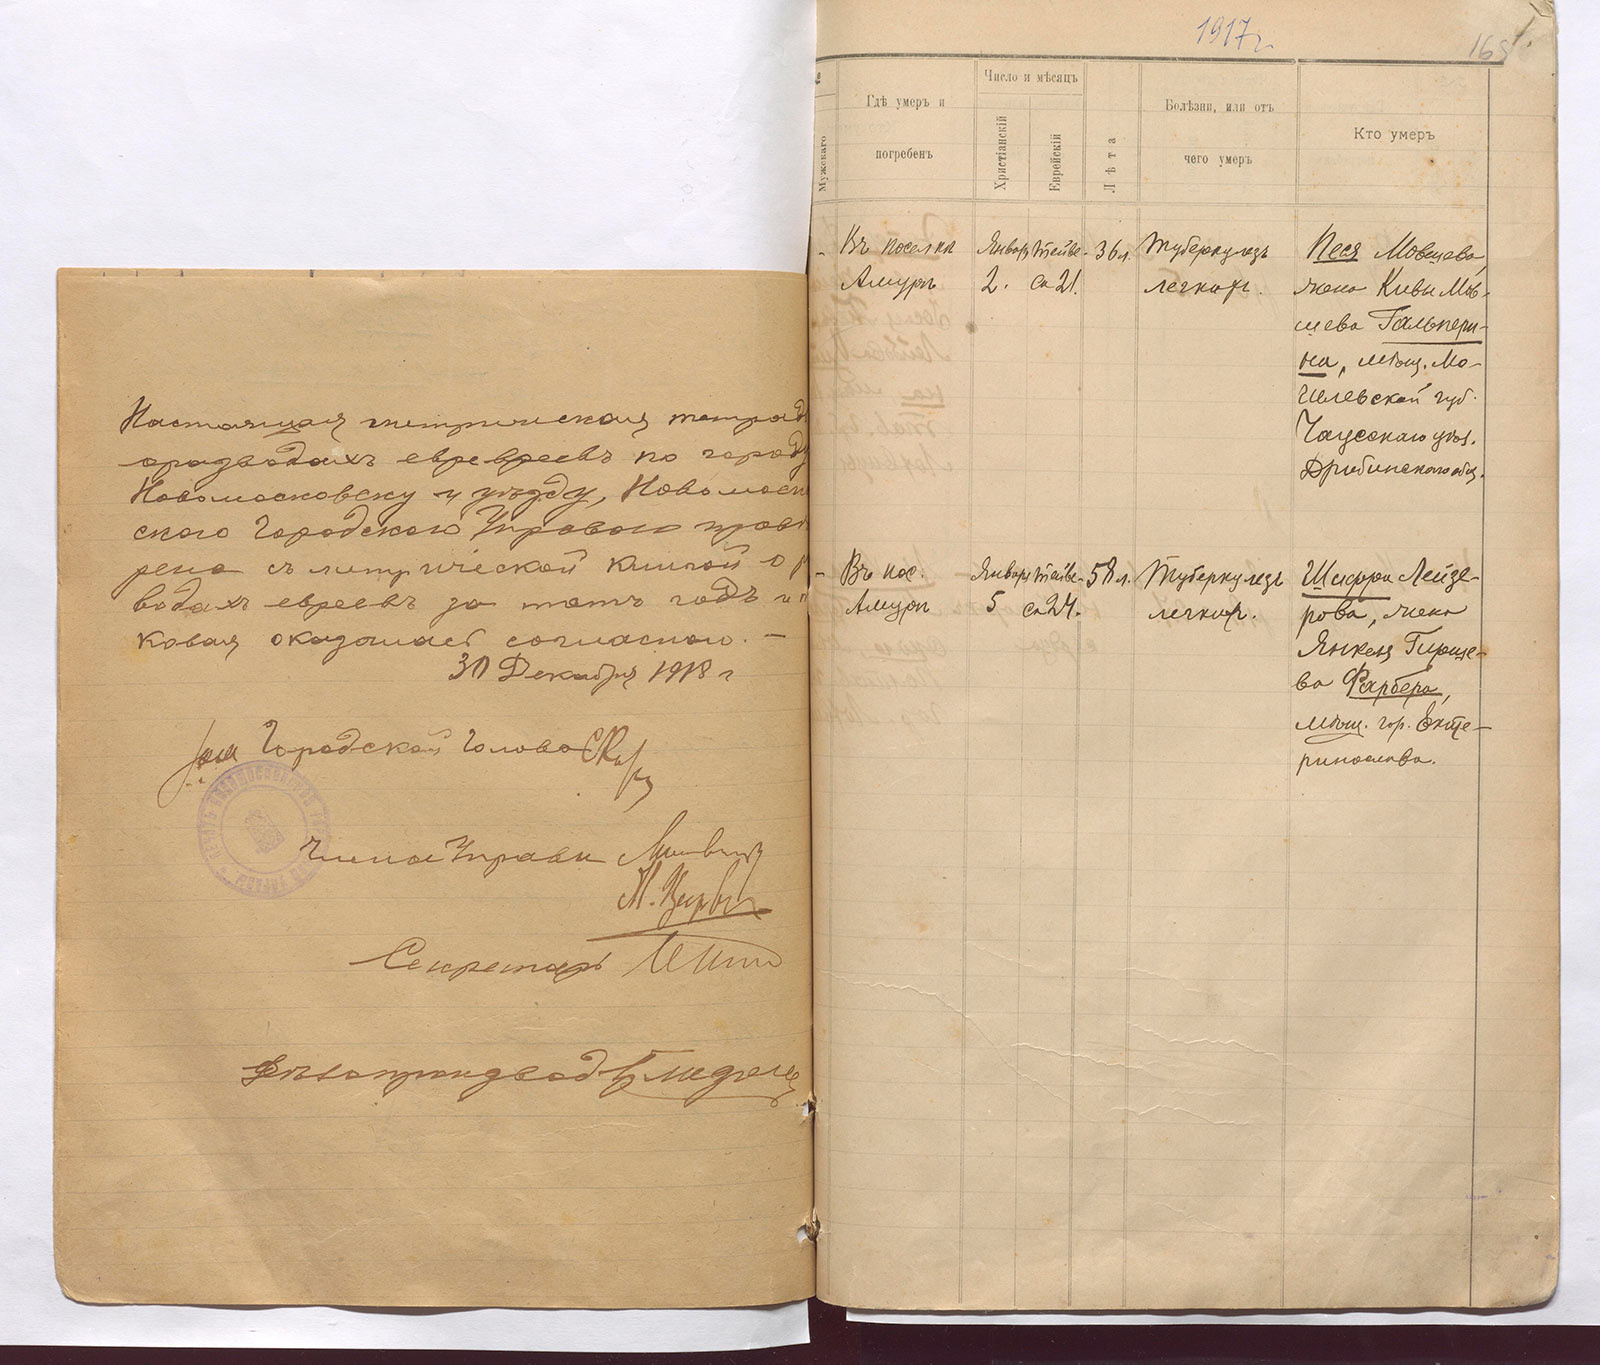 Настоящая метрическая тетрадь
о разводахъ евревреевъ по городу
Новомосковску и уѣзду, Новомоско
ского Городского Управою прове
рена съ метрической книгой о р
водахъ евреевъ за тотъ годъ и
ковая оказалась согласною. —
30 Декабря 1918 г
Городской Голова
Члены Управы
Секретарь
Дѣлопроизвод
1917 г.
165
Мужскаго
Гдѣ умеръ и
погребенъ
Число и мѣсяцъ
Христіанскій
Еврейскій
Лѣта
Болѣзни, или отъ
чего умеръ
Кто умеръ
Въ поселки
Амуръ
Январь
2.
Тейве-
са 21.
36 л.
Туберкулезъ
легкихъ.
Песя Мовшева,
жена Кивы Мов-
шева Гальпери-
на, мѣщ. Мо-
гилевской губ.
Чаусскаго уѣз.
Дрибинскаго общ.
Въ пос.
Амуръ
Январь
5
Тейве-
са 24.
58 л.
Туберкулезъ
легкихъ.
Шифра Лейзе-
рова, жена
Янкеля Гирше-
ва Фарбера,
мѣщ. гор. Екате-
ринослава.